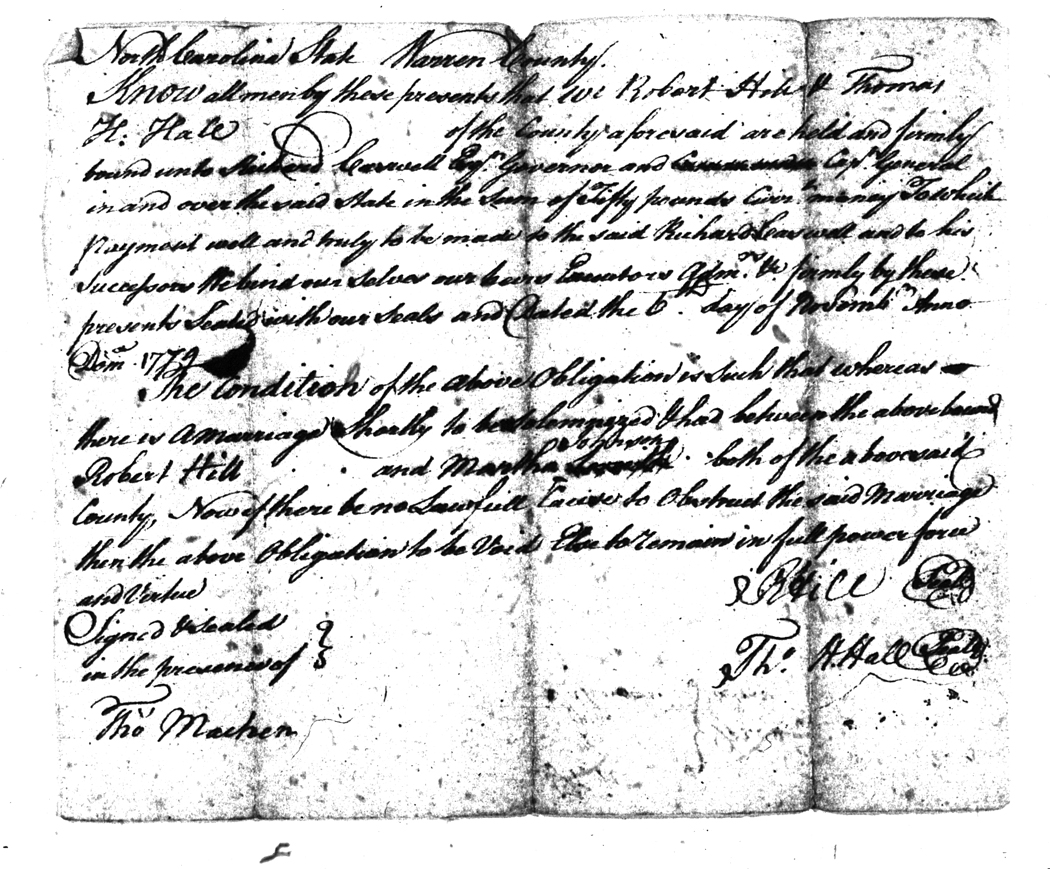 North Carolina State Warren County.
Know all men by these presents that we Robert Hill & Thomas
H. Hall of the County aforesaid are held and firmly
bound unto Richard Caswell Esqr. Governor and Capn. General
in and over the said State in the Sum of Fifty pounds Curr. money To which
Payment well and truly to be made to the said Richard Caswell and to his
Successors We bind our selves our heirs Executors Admrs. &c firmly by these
presents Sealed with our Seals and Dated the 6th. day of Novembr. Anno
Dom. 1779
The Condition of the above Obligation is Such that whereas
there is a Marriage Shortly to be Solemnized & had between the above bound
Johnson
Robert Hill and Martha both of the abovesaid
County, Now if there be no Lawfull Cause to Obstruct the said Marriage
then the above Obligation to be Void Else to remain in full power force
and Virtue
R Hill Seal
Signed & sealed
in the presence of
Tho. H. Hall Seal
Tho Machen